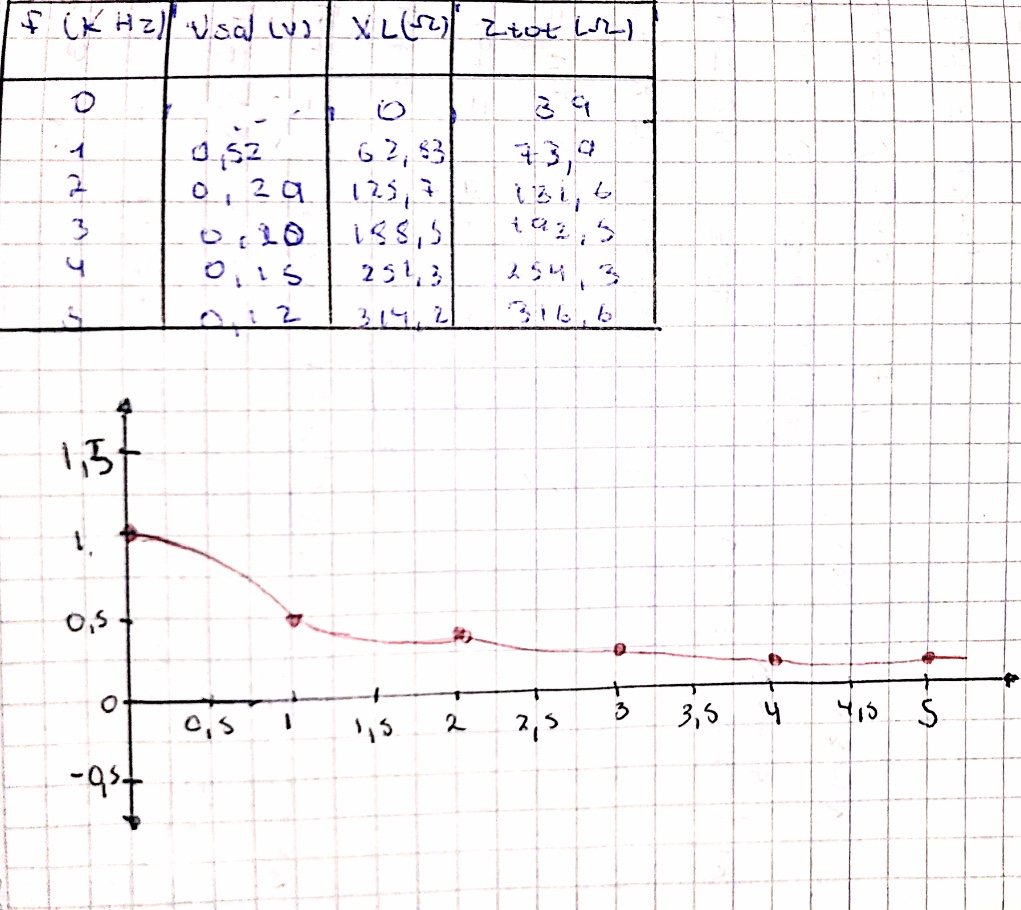 f (KHz) Vsal (V) XL (Ω) Ztot (Ω)
0 0 39
1 0,52 62,83 73,9
2 0,29 125,7 131,6
3 0,20 188,5 192,5
4 0,15 251,3 254,3
5 0,12 314,2 316,6
1,5
1
0,5
0
0,5 1 1,5 2 2,5 3 3,5 4 4,5 5
-0,5